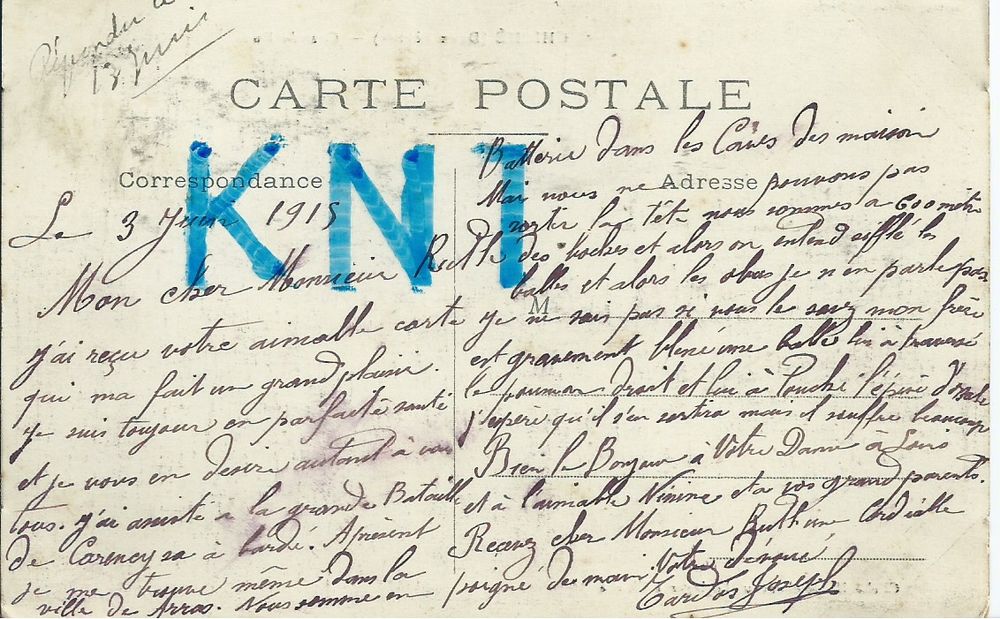 Répondu le
13 Juin
CARTE POSTALE
KN1
Correspondance
Adresse
Le 3 Juin 1915
Mon cher Monsieur
j'ai reçu votre aimable carte
qui ma fait un grand plaisir.
Je suis toujour en parfaite santé
et je vous en desire autant à vous
tous. j'ai assisté a la grande Bataille
de Carency sa à bardé. Apresent
je me trouve même dans la
ville de Arras. Nous somme en
Batterie dans les Caves des maison
Mai nous ne pouvons pas
sortir la tête nous sommes a 600 metre
des boches et alors on entend sifflé les
balles et alors les obus je n'en parle pas
M
Je ne sais pas si vous le savez mon frère
est gravement blessé une balle lui à traversé
le poumon droit et lui à Touché l'épine
j'espere qu'il s'en sortira mais il souffre beaucoup
Bien le Bonjour à Votre Dame a Louis
et à l'aimable Ninine et a vos grand parents.
Recevez cher Monsieur une Cordialle
poigné de main. Votre dévoué
Joseph